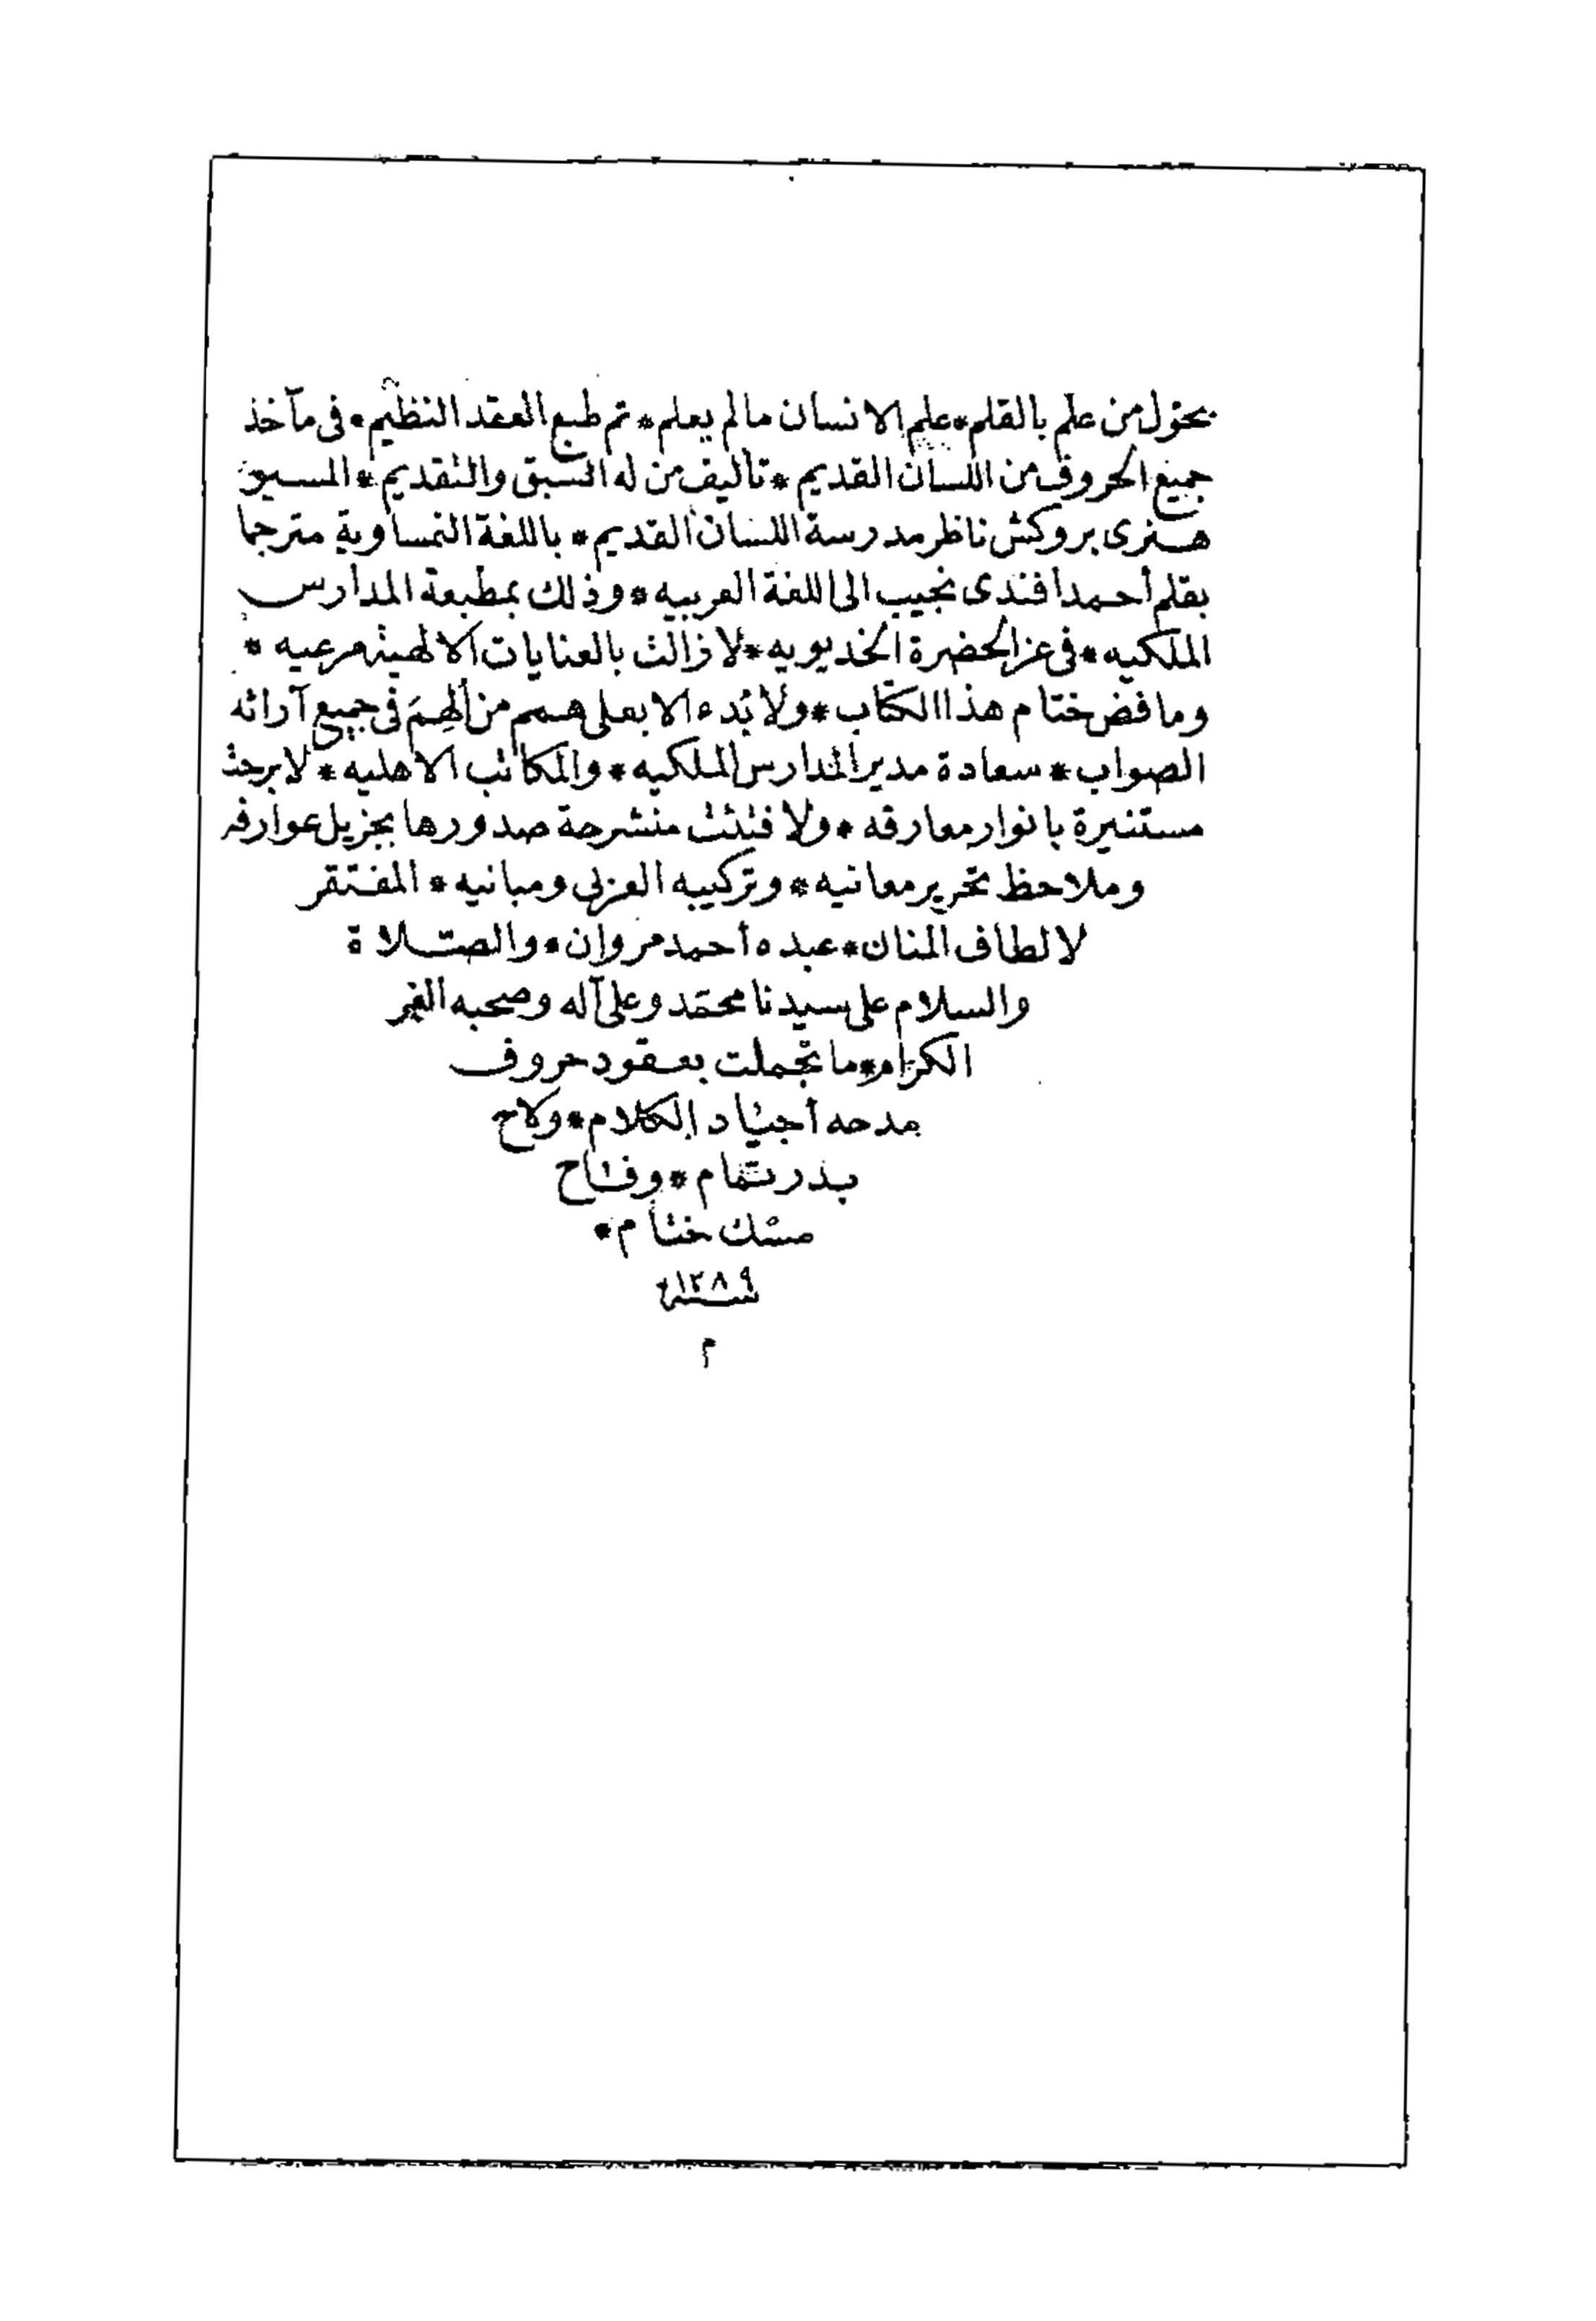 بحول من علم بالقلم * علم الانسان مالم يعلم * تم طبع العقد النظيم * فى مآخذ
جميع الحروف من اللسان القديم * تأليف من له السبق والتقديم * المسيو
هنرى بروكش ناظر مدرسة اللسان القديم * باللغة النمساوية مترجما
بقلم أحمد أفندى نجيب الى اللغة العربيه * وذلك بمطبعة المدارس
الملكيه * فى عز الحضرة الخديويه * لا زالت بالعنايات الالهية مرعيه *
وما فض ختام هذا الكتاب * ولا بدء الا بعلى همم من ألهم فى جميع آرائه
الصواب * سعادة مدير المدارس الملكيه * والمكاتب الاهليه * لا برحت
مستنيرة بانوار معارفه * ولا فتئت منشرحة صدورها بجزيل عوارفه
وملاحظ تحرير معانيه * وتركيبه العربى ومبانيه * المفتقر
لالطاف المنان * عبده أحمد مروان * والصلاة
والسلام على سيدنا محمد وعلى آله وصحبه الغر
الكرام * ما تجملت بعقود حروف
مدحه أجياد الكلام * ولاح
بدر تمام * وفاح
مسك ختام *
سنة ١٢٨٩
م